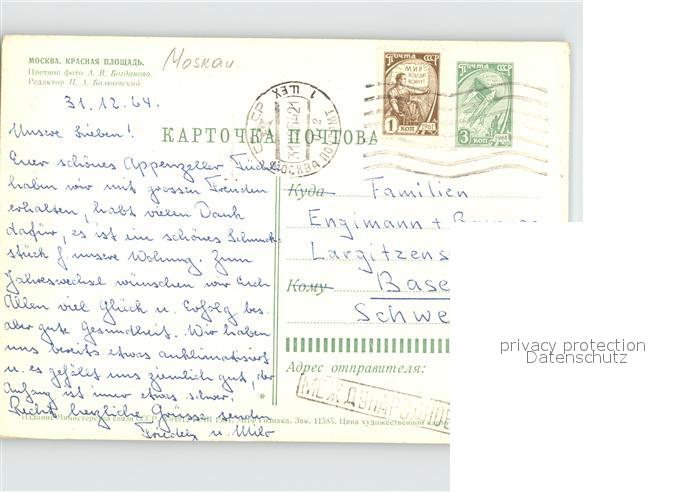 МОСКВА. КРАСНАЯ ПЛОЩАДЬ.
Цветное фото А. В. Богданова.
Редактор П. А.
Moskau
31.12.64.
МИР
ПОЧТА СССР
1 КОП 1961
ПОЧТА СССР
3 КОП 1961
МОСКВА
КАРТОЧКА ПОЧТОВА
Unsere Lieben!
Euer schönes Appenzeller Tüchli
haben wir mit grossen Freuden
erhalten, habt vielen Dank
dafür, es ist ein schönes Schmuck-
stück f. unsere Wohnung. Zum
Jahreswechsel wünschen wir Euch
Allen viel Glück u. Erfolg bes.
aber gute Gesundheit. Wir haben
uns bereits etwas anklimatisiert
u. es gefällt uns ziemlich gut, der
Anfang ist immer etwas schwer.
Recht herzliche Grüsse senden
u.
Куда
Familien
Engimann +
Largitzens
Кому
Base
Schwe
Адрес отправителя:
МЕЖДУНАРОДНОЕ
Издание Министерства связи СССР
Зак. 11585. Цена художественной карто
privacy protection
Datenschutz